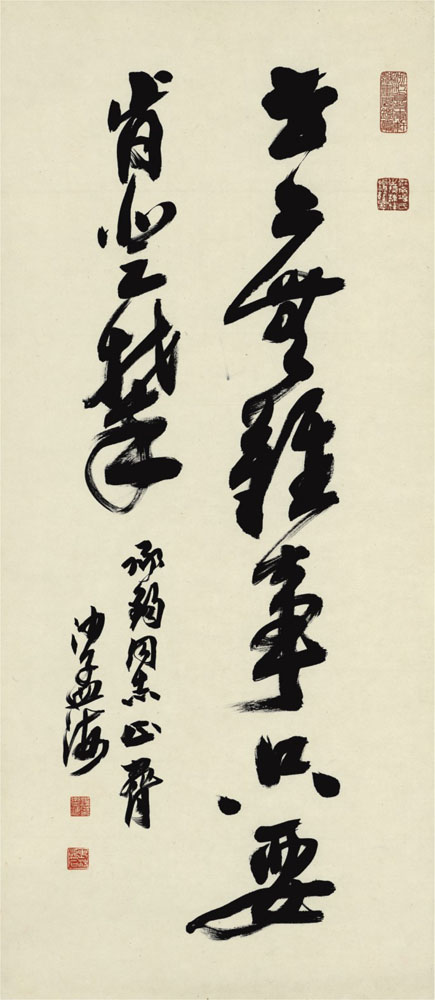 世上無難事只要
肯登攀
承鈞同志正臂
沙孟海